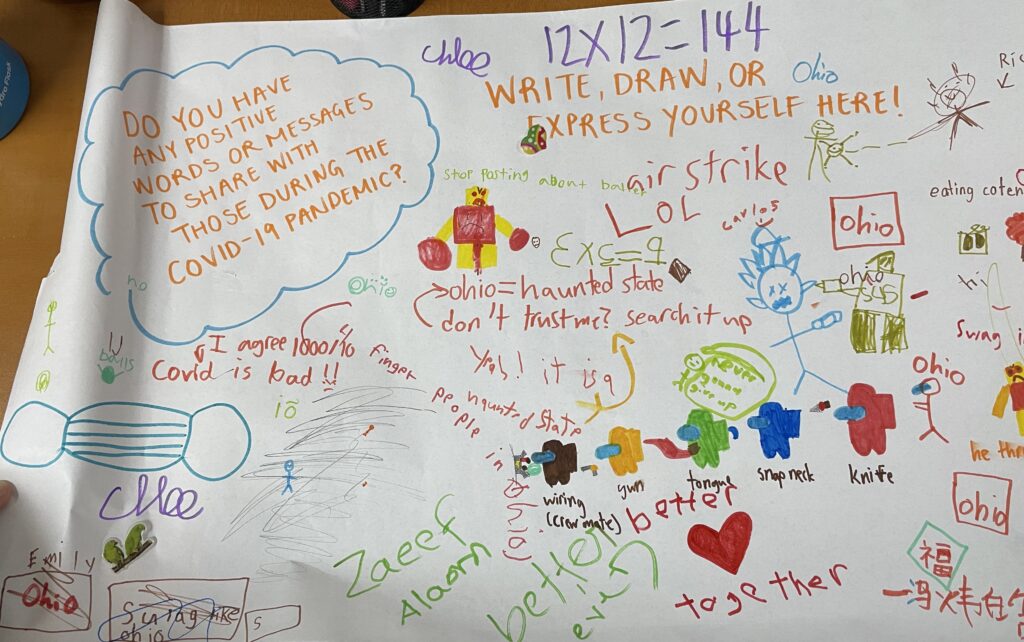 Chloe
12X12=144
WRITE, DRAW, OR
EXPRESS YOURSELF HERE!
Ohio
DO YOU HAVE
ANY POSITIVE
WORDS OR MESSAGES
TO SHARE WITH
THOSE DURING THE
COVID-19 PANDEMIC?
stop posting about baller
air strike
LOL
3X3=9
carlos
ohio
eating coten
no
Ohio
ohio
sus
hi
ohio = haunted state
don't trust me? search it up
balls
I agree 1000%
Covid is bad!!
finger
people
in
Ohio
Yes! it is a
haunted state
never
gonna
give up
Ohio
Swag
he thr
io
wiring
(crewmate)
gun
tongue
snap neck
knife
Chloe
better
together
Zaeef
Alaom
better
ever
ohio
福
Emily
Ohio
Swag like
ohio
S